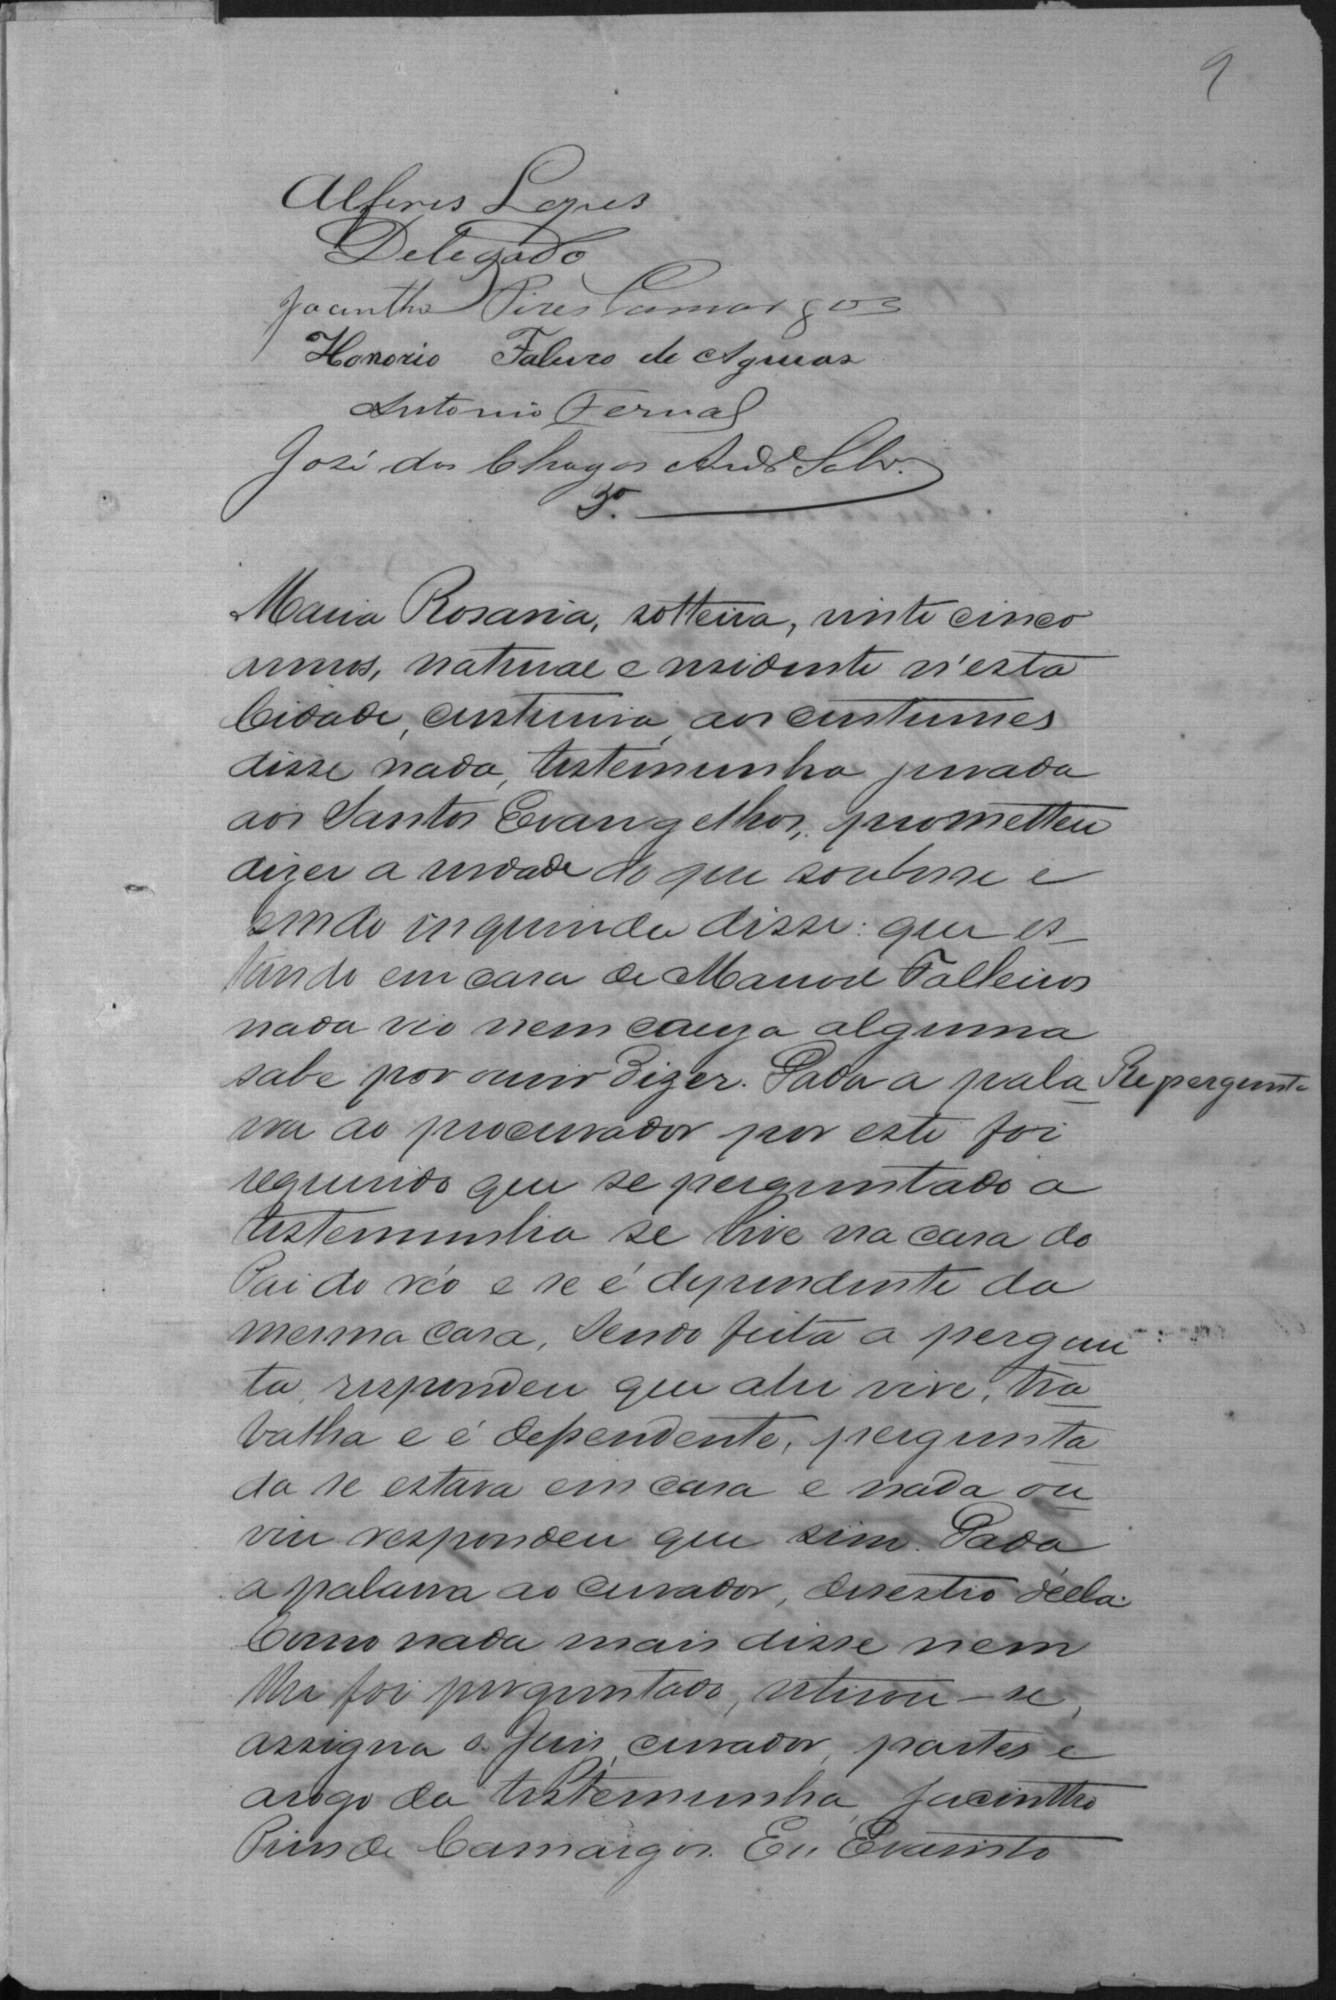 9
Alferes Lopes
Delegado
Jacintho Pires Camargos
Honorio Faleiro de Aguiar
Antonio Ferual
José das Chagas Andr Silv.
3º.
Maria Rosaria, solteira, vinte cinco
annos, natural e residente n'esta
Cidade, custureira, aos custumes
disse nada, testemunha jurada
aos Santos Evangelhos, prometteu
dizer a verdade do que soubesse e
sendo inquerida disse: que es-
tando em casa de Manoel Falleiros
nada vio nem cauza alguma
sabe por ouvir dizer. Dada a pala Repergunta
vra ao procurador por este foi
requerido que se perguntado a
testemunha se vive na casa do
Pai do réo e se é dependente da
mesma casa, Sendo feita a pergun
ta, respondeu que ahi vive, tra
balha e é dependente, pergunta
da se estava em casa e nada ou
viu respondeu que sim. Dada
a palavra ao curador, desestio della.
Como nada mais disse nem
lhe foi perguntado, retirou-se,
assigna o Juis, curador, partes e
arogo da testemunha Jacinttho
Pires de Camargos. Eu Evaristo